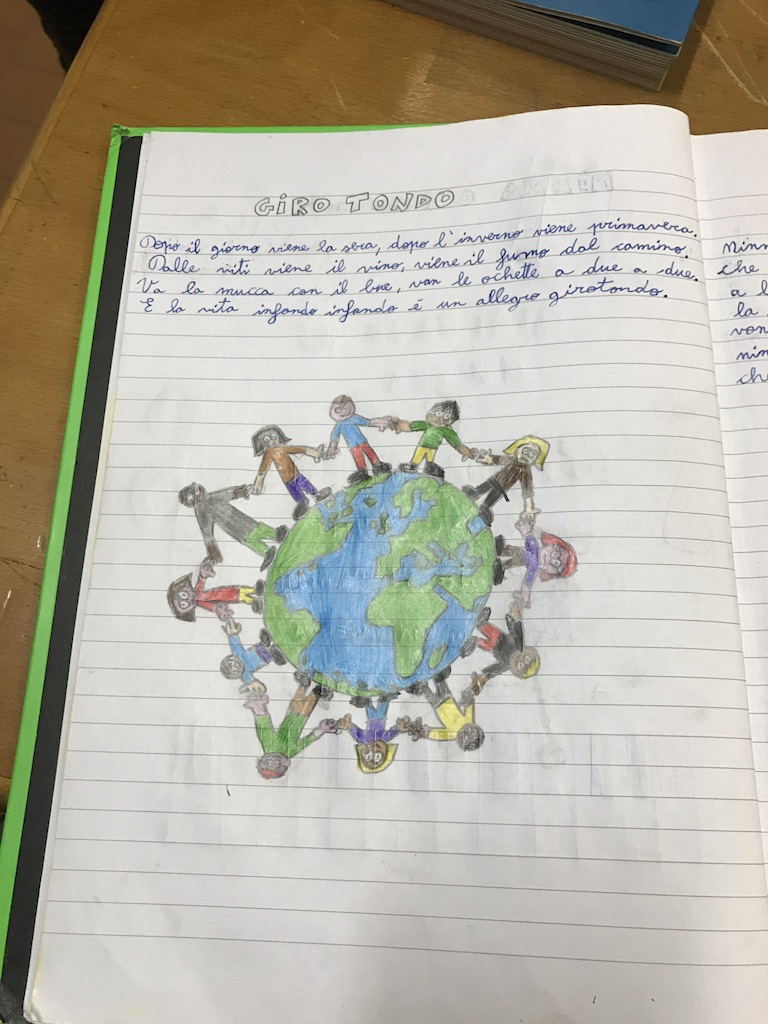 GIRO TONDO
Dopo il giorno viene la sera, dopo l'inverno viene primavera.
Dalle viti viene il vino, viene il fumo dal camino.
Va la mucca con il bue, van le ochette a due a due.
E la vita infondo infondo è un allegro girotondo.
che
a l
la
von
nin
che